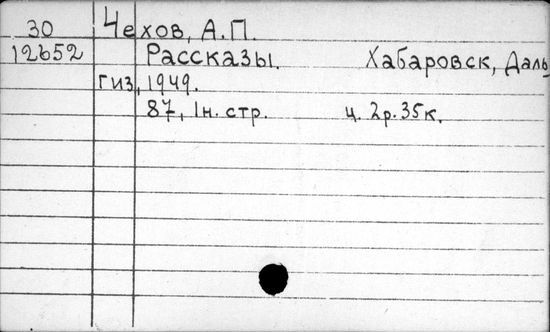 30 Чехов, А.П.
12652 Рассказы. Хабаровск, Даль
гиз, 1949.
87, 1н. стр. ц. 2р. 35к.